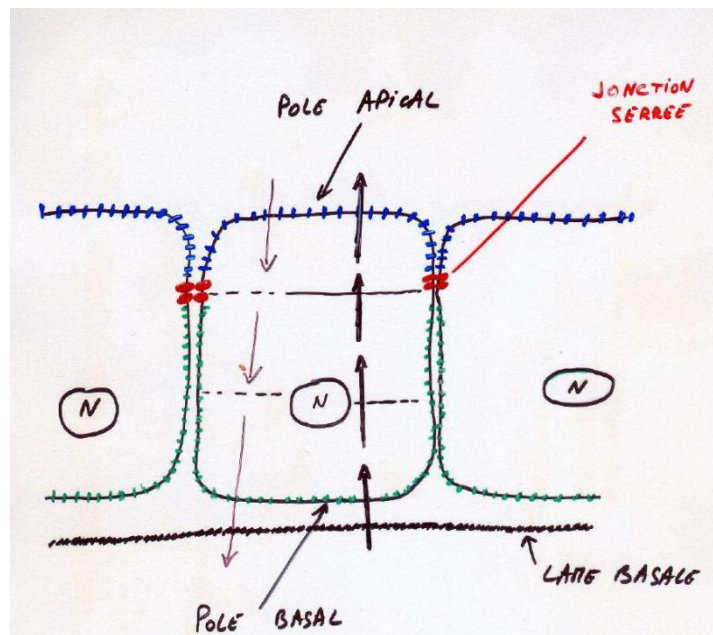 POLE APICAL
JONCTION
SERREE
N
N
N
LAME BASALE
POLE BASAL